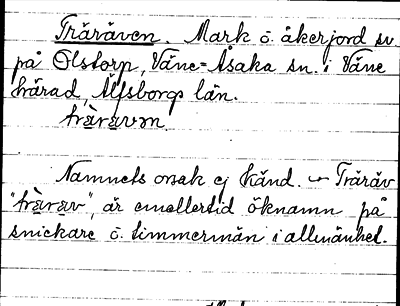 Träräven. Mark o. åkerjord sv
på Olstorp, Väne-Åsaka sn. i Väne
härad, Älfsborgs län.
trä̀rävən.
Namnets orsak ej känd. – Träräv
"trä̀räv", är emellertid öknamn på
snickare o. timmermän i allmänhet.